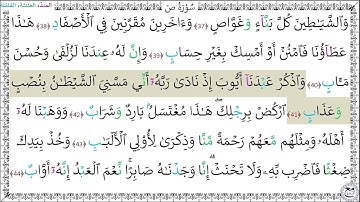 سُورَةُ صٓ
وَٱلشَّيَـٰطِينَ كُلَّ بَنَّآءٍ وَغَوَّاصٍ (37) وَءَاخَرِينَ مُقَرَّنِينَ فِى ٱلْأَصْفَادِ (38) هَـٰذَا
عَطَآؤُنَا فَٱمْنُنْ أَوْ أَمْسِكْ بِغَيْرِ حِسَابٍ (39) وَإِنَّ لَهُۥ عِندَنَا لَزُلْفَىٰ وَحُسْنَ
مَـَٔابٍ (40) وَٱذْكُرْ عَبْدَنَآ أَيُّوبَ إِذْ نَادَىٰ رَبَّهُۥٓ أَنِّى مَسَّنِىَ ٱلشَّيْطَـٰنُ بِنُصْبٍ
وَعَذَابٍ (41) ٱرْكُضْ بِرِجْلِكَ ۖ هَـٰذَا مُغْتَسَلٌۢ بَارِدٌ وَشَرَابٌ (42) وَوَهَبْنَا لَهُۥٓ
أَهْلَهُۥ وَمِثْلَهُم مَّعَهُمْ رَحْمَةً مِّنَّا وَذِكْرَىٰ لِأُو۟لِى ٱلْأَلْبَـٰبِ (43) وَخُذْ بِيَدِكَ
ضِغْثًا فَٱضْرِب بِّهِۦ وَلَا تَحْنَثْ ۗ إِنَّا وَجَدْنَـٰهُ صَابِرًا ۚ نِّعْمَ ٱلْعَبْدُ ۖ إِنَّهُۥٓ أَوَّابٌ (44)